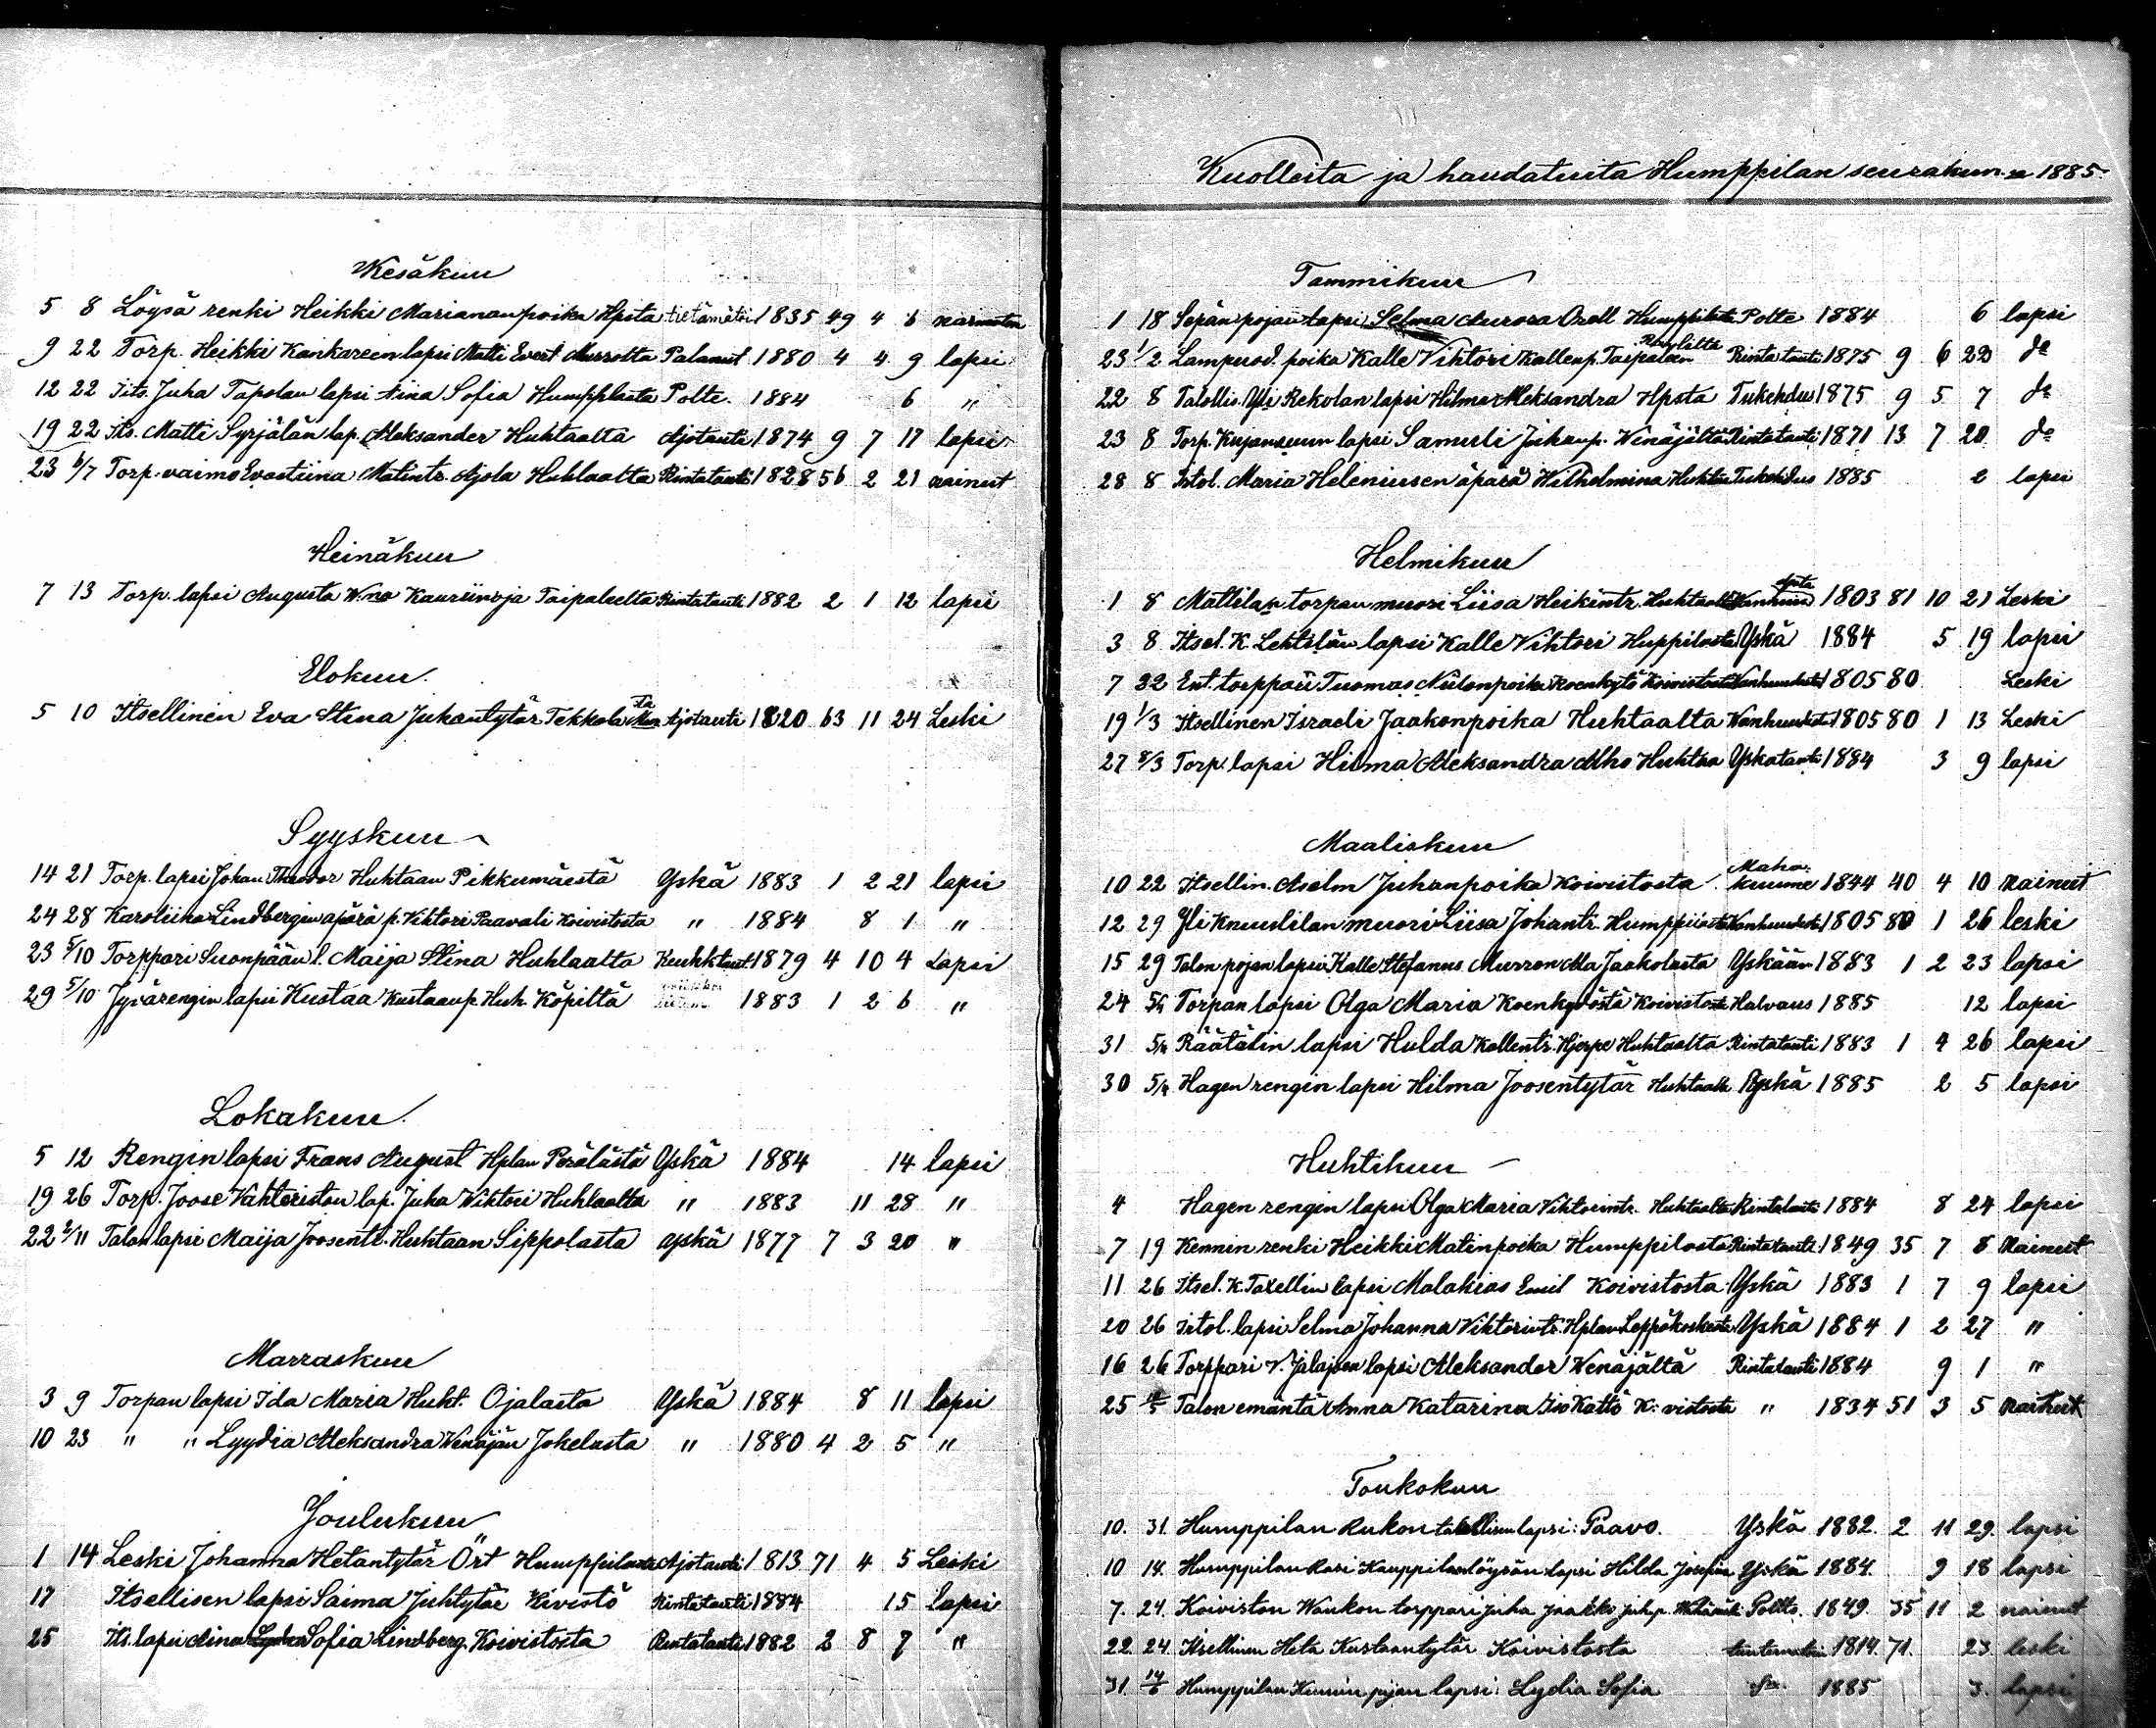 Kesäkuu
5 8 Löysä renki Heikki Mariananpoika Hpsta tietämätöin 1835 49 4 6 naimaton
9 22 Torp. Heikki Kankareen lapsi Matti Evert Murrolta Palanut 1880 4 4 9 lapsi
12 22 Its. Juha Tapolan lapsi Aina Sofia Humpplasta Polte. 1884 6 "
19 22 Its. Matti Syrjälän lap. Aleksander Huhtaalta Ajotauti 1874 9 7 17 lapsi
23 6/7 Torp. vaimo Evastiina Matintr. Ajola Huhtaalta Rintatauti 1828 56 2 21 nainut
Heinäkuu
7 13 Torp. lapsi Augusta W.na Kauriinoja Taipaleelta Rintatauti 1882 2 1 12 lapsi
Elokuu.
5 10 Itsellinen Eva Stina Jukantytär Tekkala Ajotauti 1820 63 11 24 Leski
Syyskuu
14 21 Torp. lapsi Johan Theodor Huhtaan Pikkumäestä Yskä 1883 1 2 21 lapsi
24 28 Karoliina Lindbergin äpärä p. Viktori Paavali Koivistosta " 1884 8 1 "
23 5/10 Torppari Suonpään l. Maija Stina Huhtaalta Keuhktaut 1879 4 10 4 Lapsi
29 5/10 Jyvärengin lapsi Kustaa Kustaanp. Huh. Köpiltä 1883 1 2 6 "
Lokakuu.
5 12 Rengin lapsi Frans August Hplan Perälästä Yskä 1884 14 lapsi
19 26 Torp. Joose Vahteriston lap. Juha Viktori Huhtaalta " 1883 11 28 "
22 2/11 Talon lapsi Maija Joosentr. Huhtaan Sippolasta yskä 1877 7 3 20 "
Marraskuu
3 9 Torpan lapsi Ida Maria Huht. Ojalasta Yskä 1884 8 11 lapsi
10 23 " " Lyydia Aleksandra Venäjän Jokelasta " 1880 4 2 5 "
Joulukuu
1 14 Leski Johanna Hetantytär Ört Humppilasta Ajotauti 1813 71 4 5 Leski
17 Itsellisen lapsi Saima Juhtytär Kivistö Rintatauti 1884 15 lapsi
25 Its. lapsi Aina Sofia Lindberg Koivistosta Rintatauti 1882 2 8 7 "
Kuolleita ja haudatuita Humppilan seurakun.sa 1885.
Tammikuu
1 18 Sepän pojan lapsi Selma Aurora Oxell Humppilasta Polte 1884 6 lapsi
23 1/2 Lampuod. poika Kalle Vihtori Kallenp. Taipaleen Rintatauti 1875 9 6 22 do
22 8 Talollis. Yli Rekolan lapsi Hilma Aleksandra Hpsta Tukehdus 1875 9 5 7 do
23 8 Torp. Kujansuun lapsi Samuli Juhanp. Venäjältä Rintatauti 1871 13 7 20 do
28 8 Irtol. Maria Heleniusen äpärä Wilhelmina Tukehdus 1885 2 lapsi
Helmikuu
1 8 Mattilan torpan muori Liisa Heikintr. Huhtaalta 1803 81 10 21 Leski
3 8 Itsel. K. Lehtilän lapsi Kalle Vihtori Huppilasta Yskä 1884 5 19 lapsi
7 22 Ent. torppari Tuomas Niilonpoika Koenkytö Koivistosta Vanhuudesta 1805 80 Leski
19 1/3 Itsellinen Israeli Jaakonpoika Huhtaalta Vanhuudesta 1805 80 1 13 Leski
27 8/3 Torp. lapsi Hilma Aleksandra Alho Huhtaa Yskatauti 1884 3 9 lapsi
Maaliskuu
10 22 Itsellin. Aselm Juhanpoika Koivistosta Maha kuume 1844 40 4 10 Nainut
12 29 Yli Knuutilan muori Liisa Johantr. Humppilasta Vanhuudesta 1805 80 1 26 leski
15 29 Talon pojan lapsi Kalle Stefanus Murron Ala Jaakolasta Yskään 1883 1 2 23 lapsi
24 5/4 Torpan lapsi Olga Maria Koenkydöstä Koivistosta Halvaus 1885 12 lapsi
31 5/4 Räätälin lapsi Hulda Kallentr. Hjerpe Huhtaalta Rintatauti 1883 1 4 26 lapsi
30 5/4 Hagen rengin lapsi Hilma Joosentytär Huhtaalta Yskä 1885 2 5 lapsi
Huhtikuu
4 Hagen rengin lapsi Olga Maria Vihtorintr. Huhtaalta Rintatauti 1884 8 24 lapsi
7 19 Kennin renki Heikki Matinpoika Humppilasta Rintatauti 1849 35 7 8 Nainut
11 26 Itsel. K. Taxellin lapsi Malakias Emil Koivistosta Yskä 1883 1 7 9 lapsi
20 26 Irtol. lapsi Selma Johanna Viktorintr. Hplan Leppäkoskesta Yskä 1884 1 2 27 "
16 26 Torppari V. Jalajoen lapsi Aleksander Venäjältä Rintatauti 1884 9 1 "
25 Talon emäntä Anna Katarina Iso Kattö K:vistosta " 1834 51 3 5 Nainut
Toukokuu
10. 31. Humppilan Rukon talollisen lapsi: Paavo. Yskä 1882. 2 11 29. lapsi
10 14. Humppilan Rasi Kauppilan löysän lapsi Hilda Josefina Yskä 1884. 9 18 lapsi
7. 24. Koiviston Wankon torppari Juha Jaakko Juh.p. Poltto. 1849. 35 11 2 nainut
22. 24. Itsellinen Heta Kustaantytär Koivistosta tuntematoin 1814. 71. 23. leski
31. 14/6 Humppilan Kunnin pijan lapsi: Lydia Sofia 1885 3. lapsi